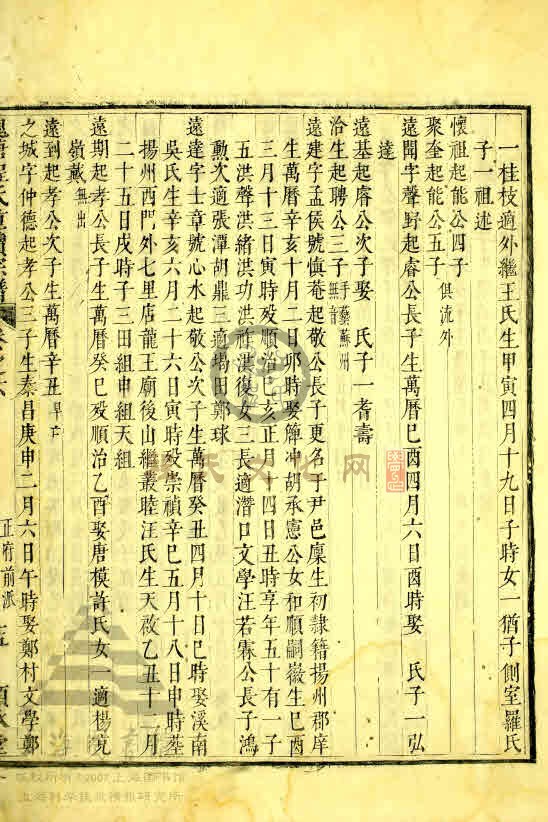 一桂枝適外繼王氏生甲寅四月十九日子時女一猶子側室羅氏
子一祖述
懷祖起能公四子
聚奎起能公五子 俱流外
遠聞字聲野起睿公長子生萬曆己酉四月六日酉時娶 氏子一弘
達
遠基起睿公次子娶 氏子一耆壽
洽生起聘公三子 手藝蘇州無音
遠建字孟侯號慎菴起敬公長子更名于尹邑廩生初隸籍揚州郡庠
生萬曆辛亥十月二日卯時娶簰冲胡承憲公女和順嗣嶶生己酉
三月十三日寅時殁順治己亥正月十四日丑時享年五十有一子
五洪聲洪緒洪功洪祥洪復女三長適潛口文學汪若霖公長子鴻
勲次適張潭胡鼎三適塲田鄭球
遠達字士章號心水起敬公次子生萬曆癸丑四月十日巳時娶溪南
吳氏生辛亥六月二十六日寅時殁崇禎辛巳五月十八日申時塟
揚州西門外七里店龍王廟後山繼叢睦汪氏生天啟乙丑十二月
二十五日戌時子三田組申組天組
遠期起孝公長子生萬曆癸巳殁順治乙酉娶唐模許氏女一適楊克
嶺戴 無出
遠到起孝公次子生萬曆辛丑 早亡
之城字仲德起孝公三子生泰昌庚申二月六日午時娶鄭村文學鄭
正府前派